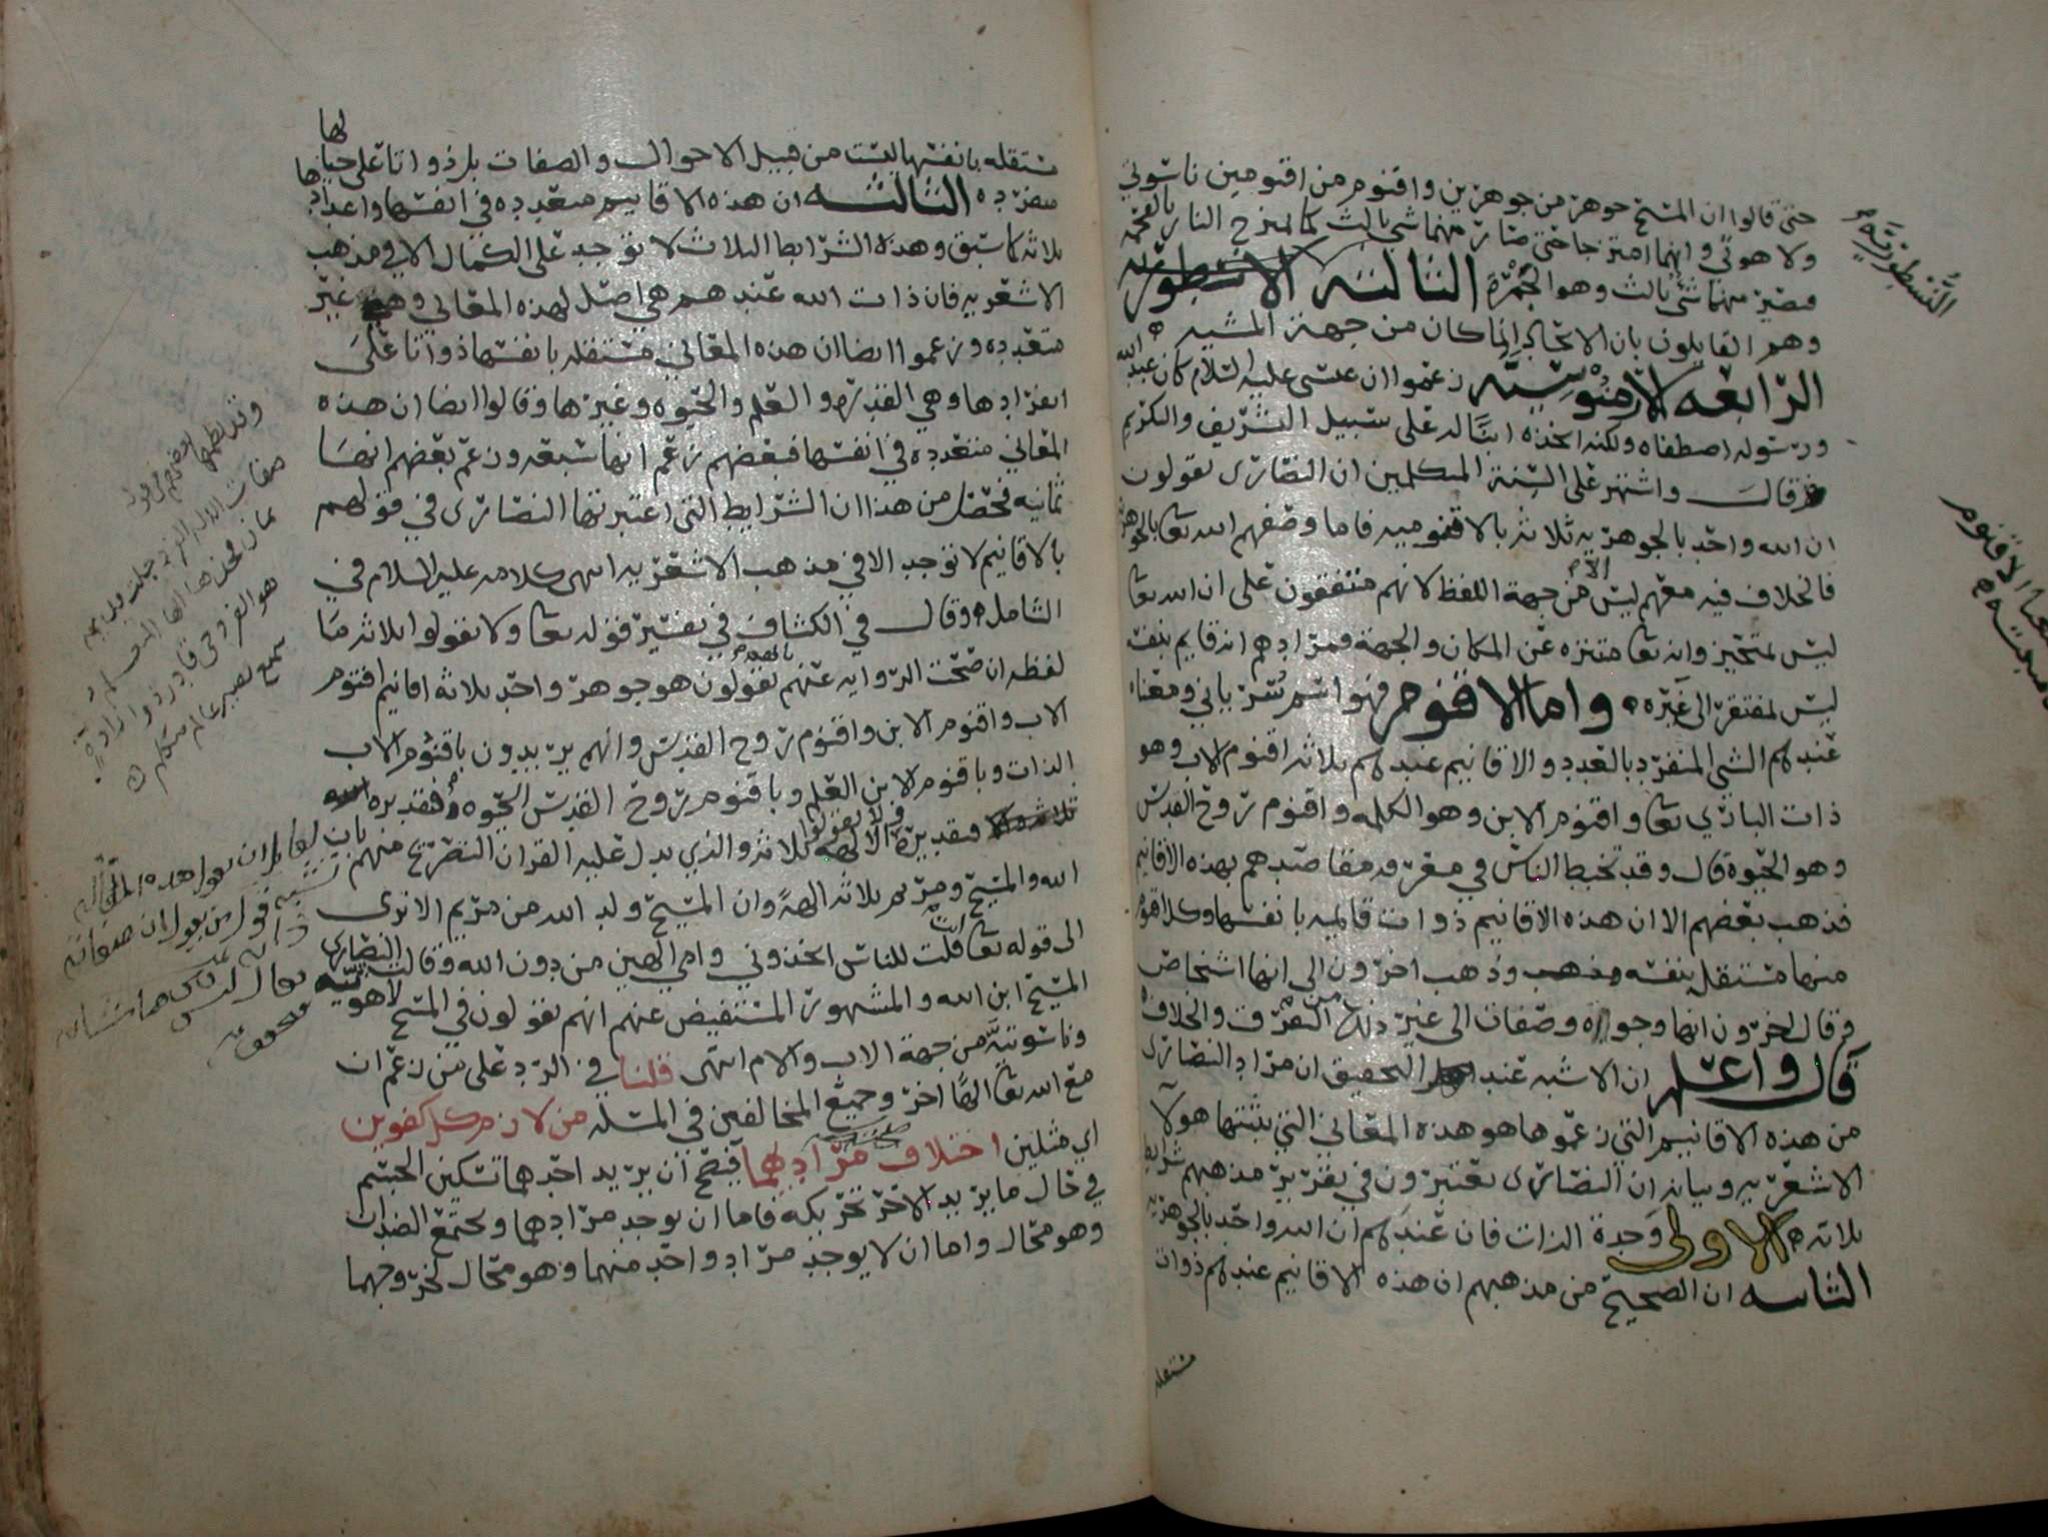 حتى قالوا ان المسيح جوهر من جوهرين واقنوم من اقنومين ناسوتي
ولا هوتي وانهما امتزجا حتى صار منهما شي ثالث كما تمتزج النار بالفحمه
فيصير منهما شي ثالث وهو الجمرة الثالثة
النسطورية
وهم القايلون بان الاتحاد انما كان من جهة المشيه
الرابعه الارمنوسيه زعموا ان عيسى عليه السلام كان عبد الله
ورسوله اصطفاه ولكنه اتخذه ابنًا له على سبيل التشريف والتكريم
قال واشتهر على السنة المتكلمين ان النصارى يقولون
ان الله واحد بالجوهريه ثلاثه بالاقنوميه فاما وصفهم الله تعا بالجوهر
فالخلاف فيه معهم ليس الا من جهة اللفظ لانهم متفقون على ان الله تعا
ليس بمتحيز وانه تعا متنزه عن المكان والجهة فمرادهم انه قايم بنفسه
ليس بمفتقر الى غيره واما الاقنوم فهو اسم سرياني ومعناه
عندهم الشي المنفرد بالعدد والاقانيم عندهم ثلاثه اقنوم الاب وهو
ذات الباري تعا واقنوم الابن وهو الكلمه واقنوم روح القدس
وهو الحيوه قال وقد تخبط الناس في معرفه مقاصدهم بهذه الاقانيم
فذهب بعضهم الا ان هذه الاقانيم ذوات قايمه بانفسها وكل اقنوم
منها مستقل بنفسه وذهب اخرون الى انها اشخاص
وقال اخرون انها وجوه وصفات الى غير ذلك من التفرق والخلاف
قال واعلم ان الاشبه عند التحقيق ان مراد النصارى
من هذه الاقانيم التي زعموها هو هذه المعاني التي يثبتها هولآ
الاشعريه وبيانه ان النصارى يعتبرون في تقرير مذهبهم شرايط
ثلاثه الاولى وحدة الذات فان عندهم ان الله واحد بالجوهريه
الثانيه ان الصحيح من مذهبهم ان هذه الاقانيم عندهم ذوات
مستقله
مستقله بانفسها ليست من قبيل الاحوال والصفات بل ذواتا على حيالها
مفرده الثالثه ان هذه الاقانيم متعدده في انفسها واعدادها
ثلاثه كما سبق وهذه الشرايط الثلاث لا توجد على الكمال الا في مذهب
الاشعريه فان ذات الله عندهم هي اصل لهذه المعاني وهي غير
متعدده وزعموا ايضا ان هذه المعاني مستقله بانفسها ذواتا على
انفرادها وهي القدرة والعلم والحيوه وغيرها وقالوا ايضا ان هذه
المعاني متعدده في انفسها فبعضهم زعم انها سبعه وزعم بعضهم انها
ثمانيه فحصل من هذا ان الشرايط التي اعتبرتها النصارى في قولهم
بالاقانيم لا توجد الا في مذهب الاشعريه انتهى كلامه عليه السلام في
الشامل وقال في الكشاف في تفسير قوله تعا ولا تقولوا ثلاثه ما
لفظه ان صحت الروايه عنهم بانهم يقولون هو جوهر واحد ثلاثه اقانيم اقنوم
الاب واقنوم الابن واقنوم روح القدس وانهم يريدون باقنوم الاب
الذات وباقنوم الابن العلم وباقنوم روح القدس الحيوه فتقديره الله
ثلاثه والا فتقديره ولا تقولوا الالهه ثلاثه والذي يدل عليه القران التصريح منهم بان
الله والمسيح ومريم ثلاثه الهةً وان المسيح ولد الله من مريم الا ترى
الى قوله تعا اانت قلت للناس اتخذوني وامي الهين من دون الله وقالت النصارى
المسيح ابن الله والمشهور المستفيض عنهم انهم يقولون في المسيح لاهوتيه
وناسوتيه من جهة الاب والام انتهى قلنا في الرد على من زعم ان
مع الله تعا الهًا اخر وجميع المخالفين في المسله من لازم كل كفوين
اي مثلين اختلاف مراديهما فيصح ان يريد احدهما تسكين الجسم
في حال ما يريد الاخر تحريكه فاما ان يوجد مراديهما ويجتمع الضدان
وهو محال واما ان لا يوجد مراد واحد منهما وهو محال لخروجهما
وقد نظمها بعضهم في قوله
هو الفرد حي قادر ذو ارادة
سميع بصير عالم متكلم